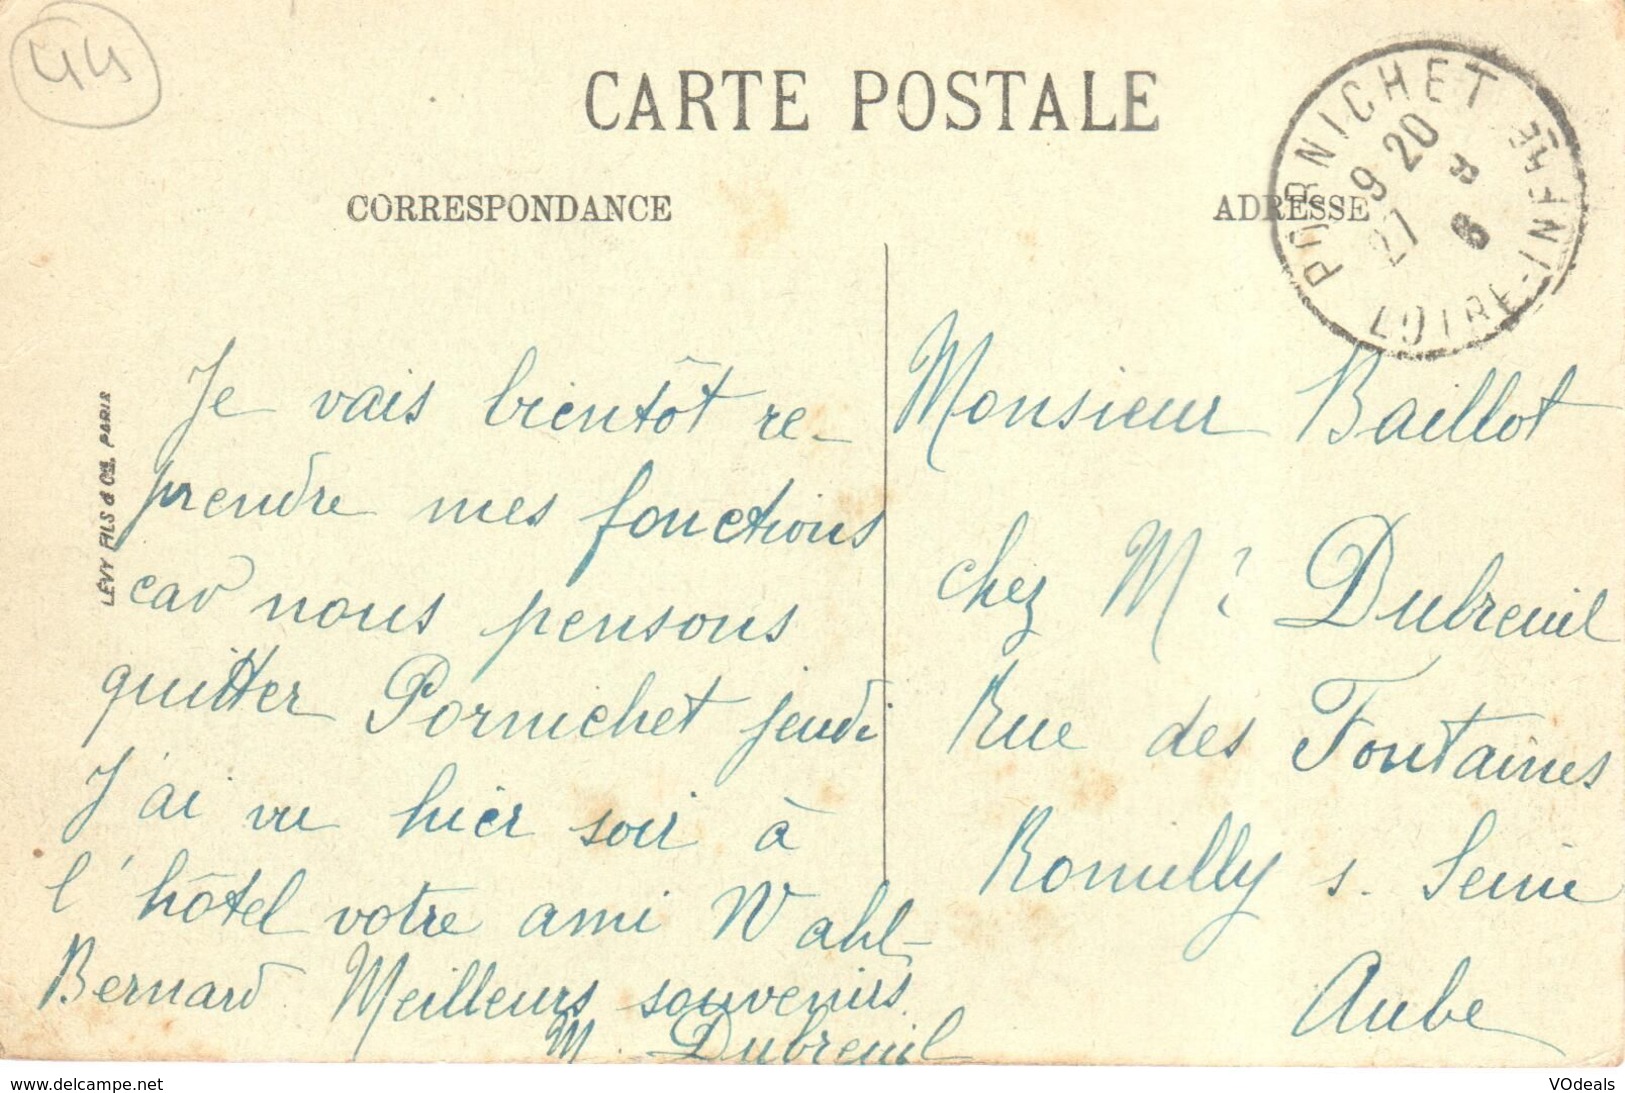 44
CARTE POSTALE
CORRESPONDANCE
ADRESSE
PORNICHET
9 20
27 8
LOIRE-INFRE
LÉVY FILS & Cie, PARIS
Je vais bientôt re-
prendre mes fonctions
car nous pensons
quitter Pornichet jeudi
J'ai vu hier soir à
l'hôtel votre ami Wahl-
Bernard. Meilleurs souvenirs.
M. Dubreuil
Monsieur Baillot
chez Mr Dubreuil
Rue des Fontaines
Romilly s. Seine
Aube
www.delcampe.net
VOdeals